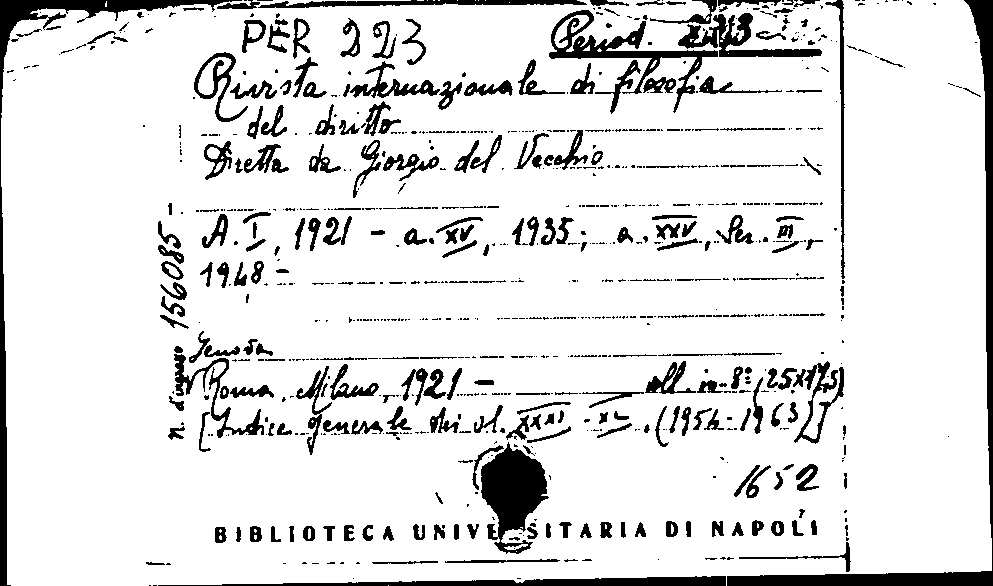 PER 223 Period.
Rivista internazionale di filosofia
del diritto
Diretta da Giorgio del Vecchio
A. I, 1921 - a. XV, 1935; a. XXV, Ser. III,
1948 -
n. d'ingresso 156085 -
Genova
Roma, Milano, 1921 - voll. in-8º (25x17,5)
[Indice generale dei vl. XXXI - XL. (1954-1963)]
1652
BIBLIOTECA UNIVERSITARIA DI NAPOLI